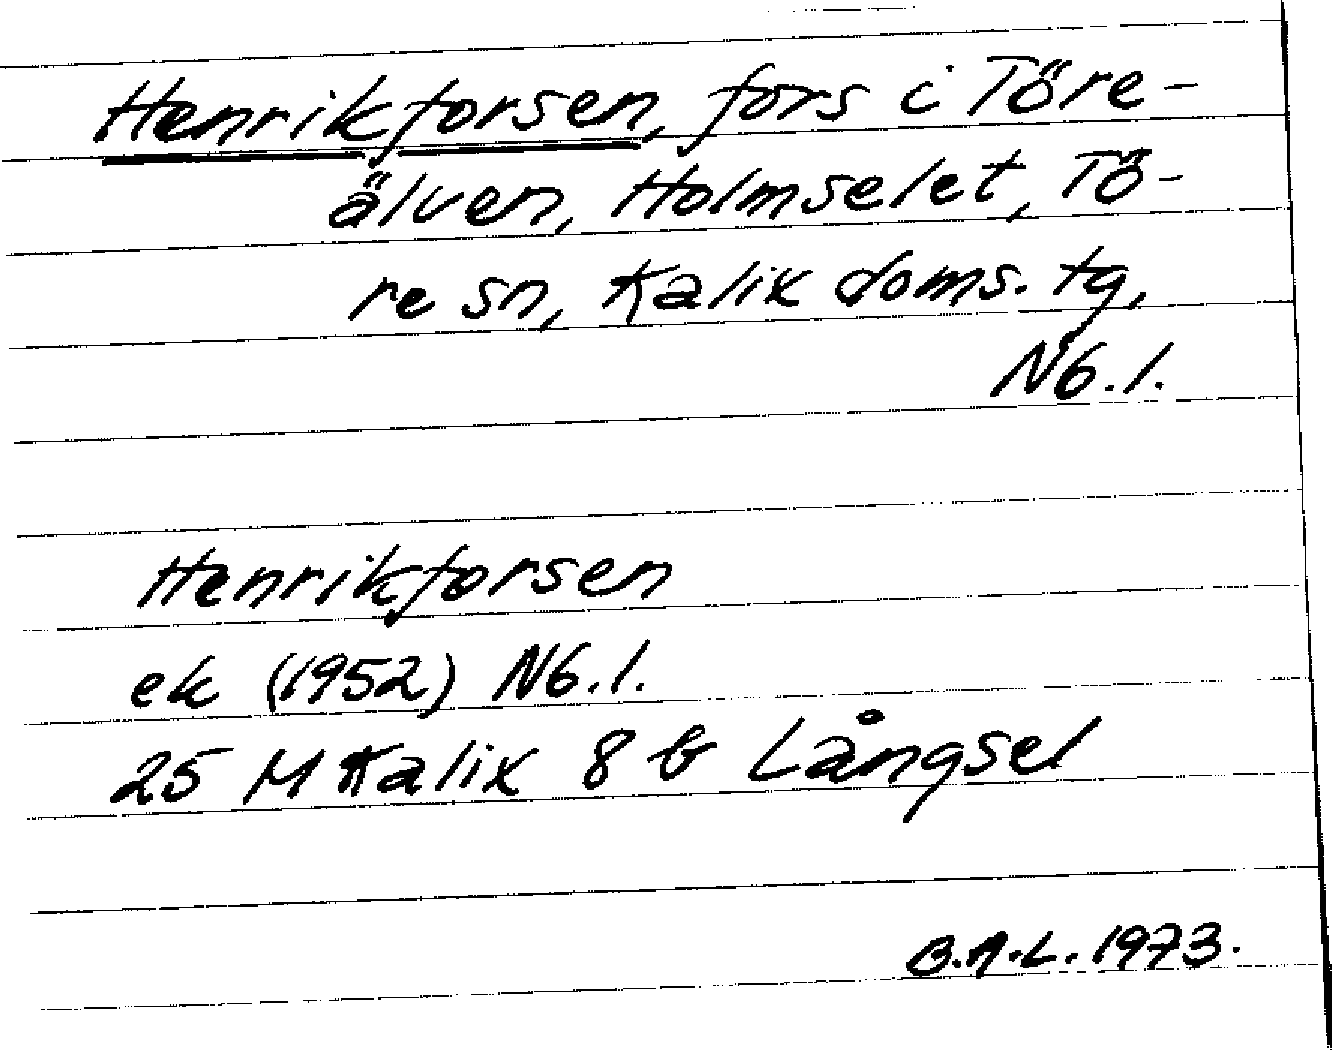 Henrikforsen, fors i Töre-
älven, Holmselet, Tö-
re sn, Kalix doms. tg,
Nb.l.
Henrikforsen
ek (1952) Nb.l.
25 M Kalix 8 b Långsel
B.A.L. 1973.